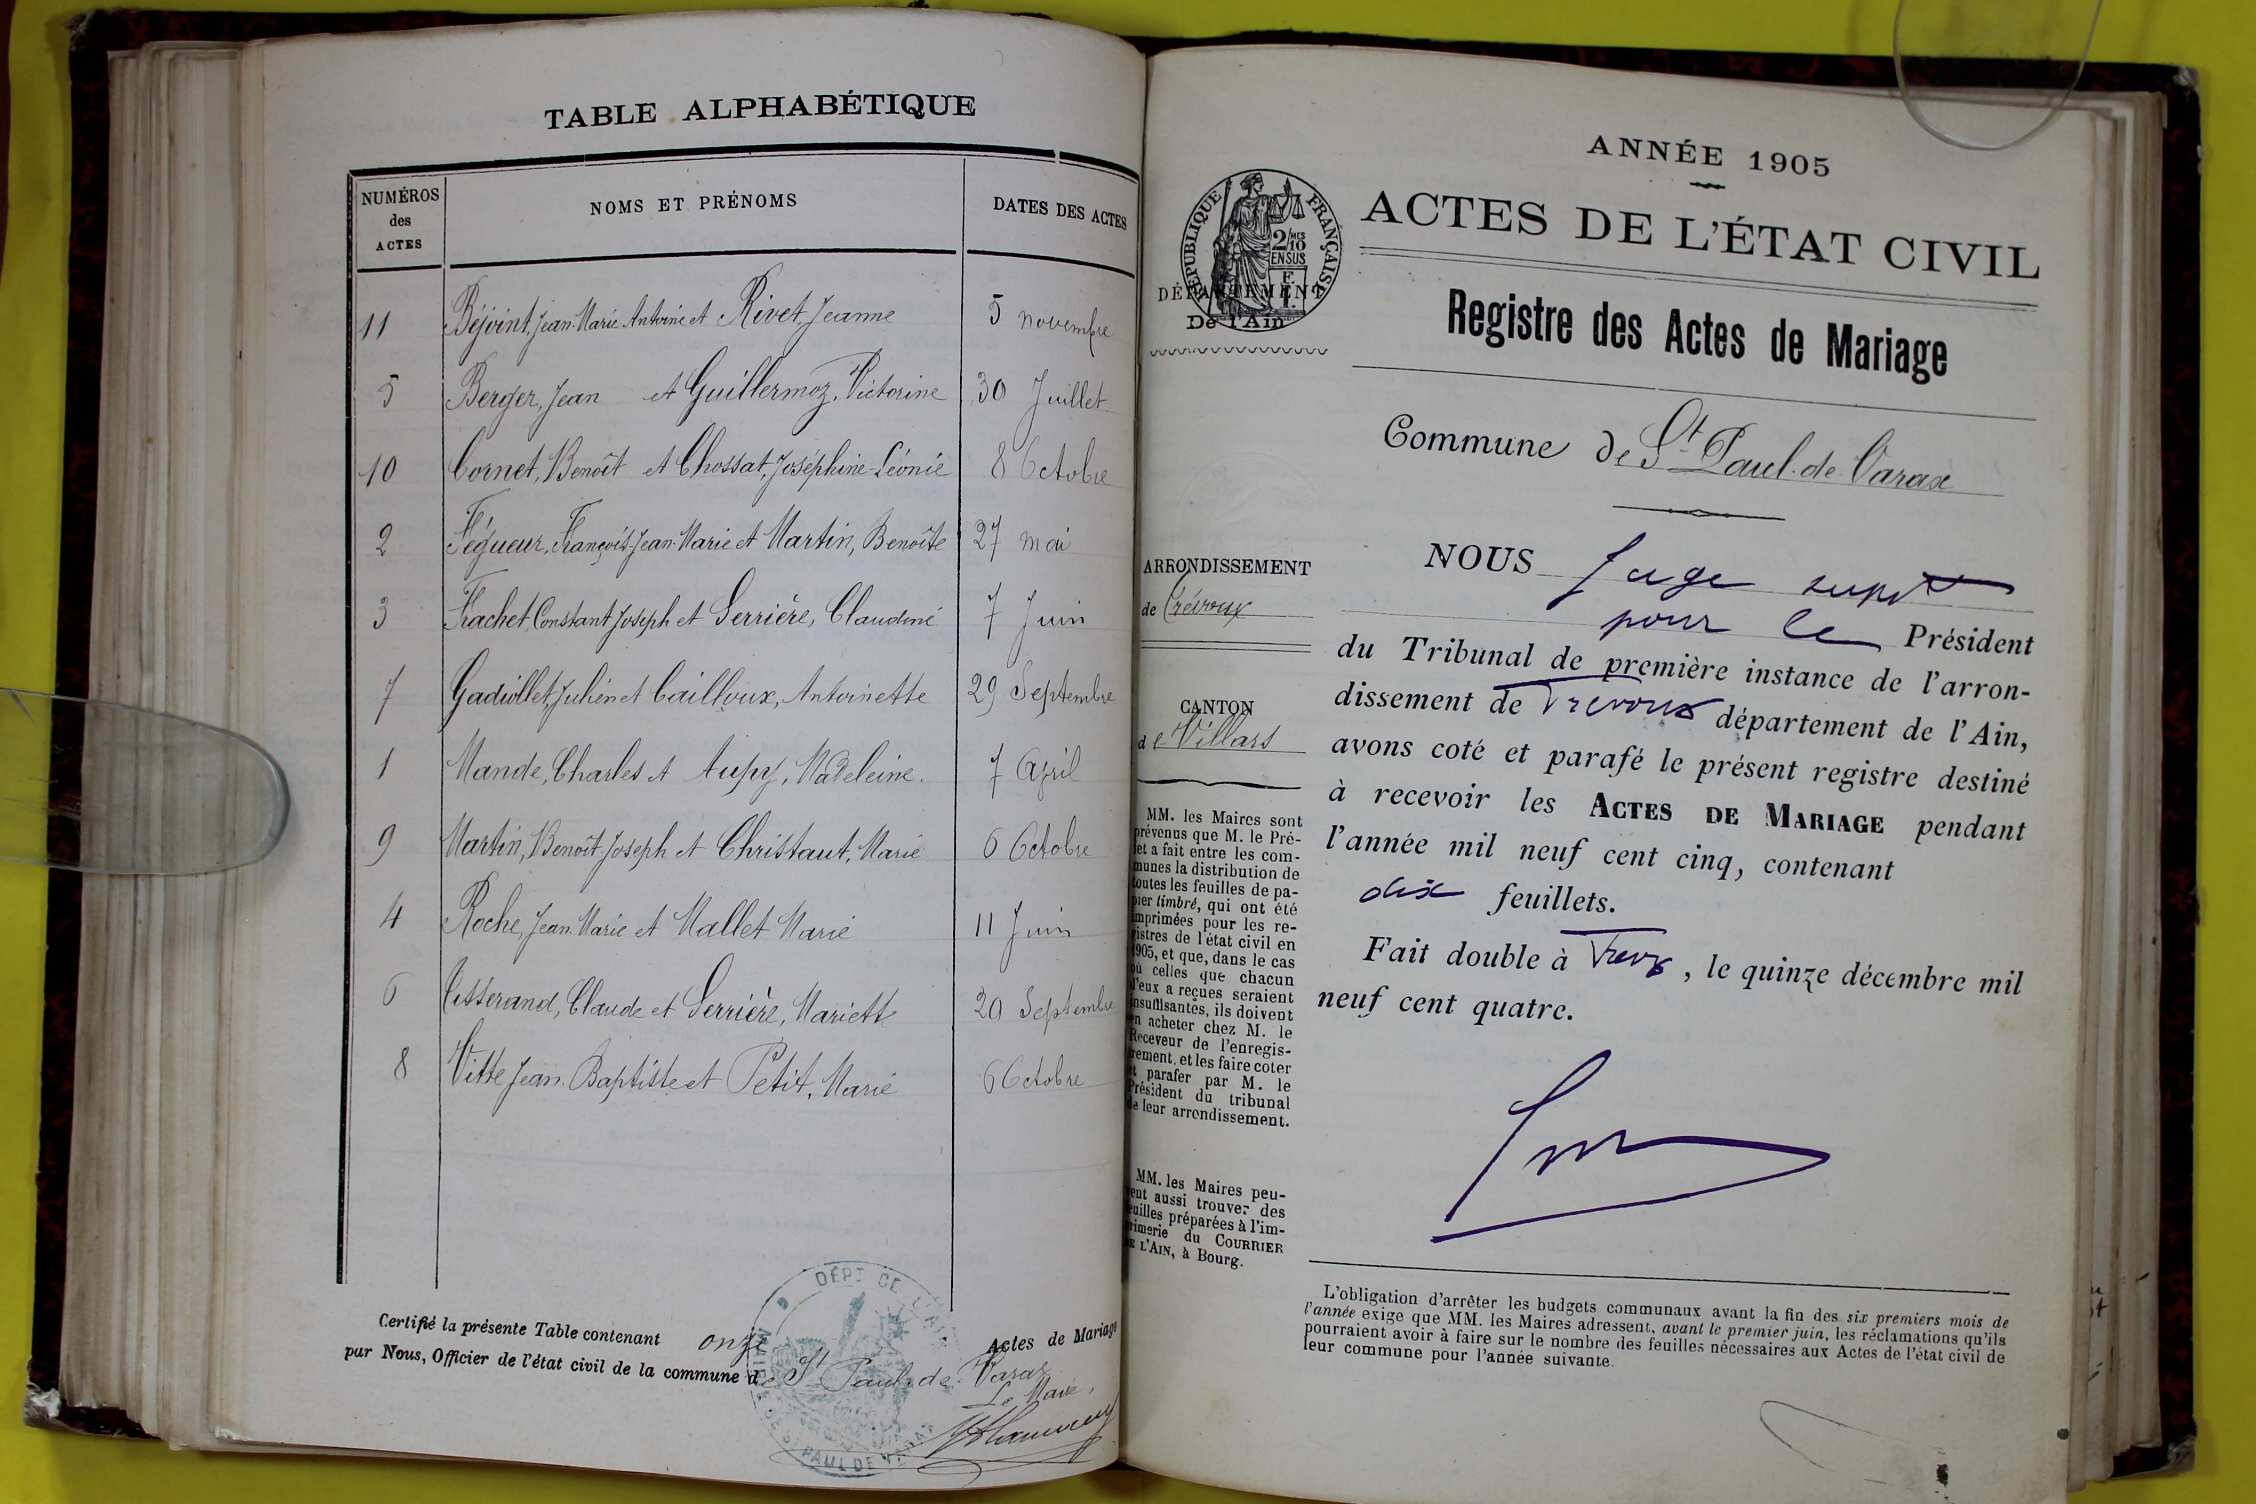 TABLE ALPHABÉTIQUE
NUMÉROS des ACTES NOMS ET PRÉNOMS DATES DES ACTES
11 Béjoint, Jean-Marie Antoine et Rivet, Jeanne 5 novembre
5 Berger, Jean et Guillermoz, Victorine 30 Juillet
10 Cornet, Benoît et Chossat, Joséphine-Léonie 8 Octobre
2 Fégueur, François-Jean-Marie et Martin, Benoîte 27 mai
3 Frachet, Constant Joseph et Serrière, Claudine 7 Juin
7 Gadiollet, Julien et Cailloux, Antoinette 29 Septembre
1 Mande, Charles et Aupy, Madeleine. 7 April
9 Martin, Benoît-Joseph et Christaut, Marie 6 Octobre
4 Roche, Jean-Marie et Mallet Marie 11 Juin
6 Tisserand, Claude et Serrière, Mariette 20 Septembre
8 Vitte Jean-Baptiste et Petit, Marie 6 Octobre
Certifié la présente Table contenant onze Actes de Mariage
par Nous, Officier de l'état civil de la commune de St Paul-de-Varax
Le Maire,
DÉPT DE L'AIN
MAIRIE DE ST PAUL DE VARAX
ANNÉE 1905
ACTES DE L'ÉTAT CIVIL
Registre des Actes de Mariage
RÉPUBLIQUE FRANÇAISE
2/10 MES
EN SUS
F.
1.
DÉPARTEMENT
De l'Ain
Commune de St Paul-de-Varax
ARRONDISSEMENT
de Trévoux
CANTON
de Villars
MM. les Maires sont
prévenus que M. le Pré-
fet a fait entre les com-
munes la distribution de
toutes les feuilles de pa-
pier timbré, qui ont été
imprimées pour les re-
gistres de l'état civil en
1905, et que, dans le cas
où celles que chacun
d'eux a reçues seraient
insuffisantes, ils doivent
en acheter chez M. le
Receveur de l'enregis-
trement, et les faire coter
et parafer par M. le
Président du tribunal
de leur arrondissement.
MM. les Maires peu-
vent aussi trouver des
feuilles préparées à l'im-
primerie du COURRIER
DE L'AIN, à Bourg.
NOUS Juge supt
pour le Président
du Tribunal de première instance de l'arron-
dissement de Trevoux département de l'Ain,
avons coté et parafé le présent registre destiné
à recevoir les ACTES DE MARIAGE pendant
l'année mil neuf cent cinq, contenant
dix feuillets.
Fait double à Trevx, le quinze décembre mil
neuf cent quatre.
L'obligation d'arrêter les budgets communaux avant la fin des six premiers mois de
l'année exige que MM. les Maires adressent, avant le premier juin, les réclamations qu'ils
pourraient avoir à faire sur le nombre des feuilles nécessaires aux Actes de l'état civil de
leur commune pour l'année suivante.